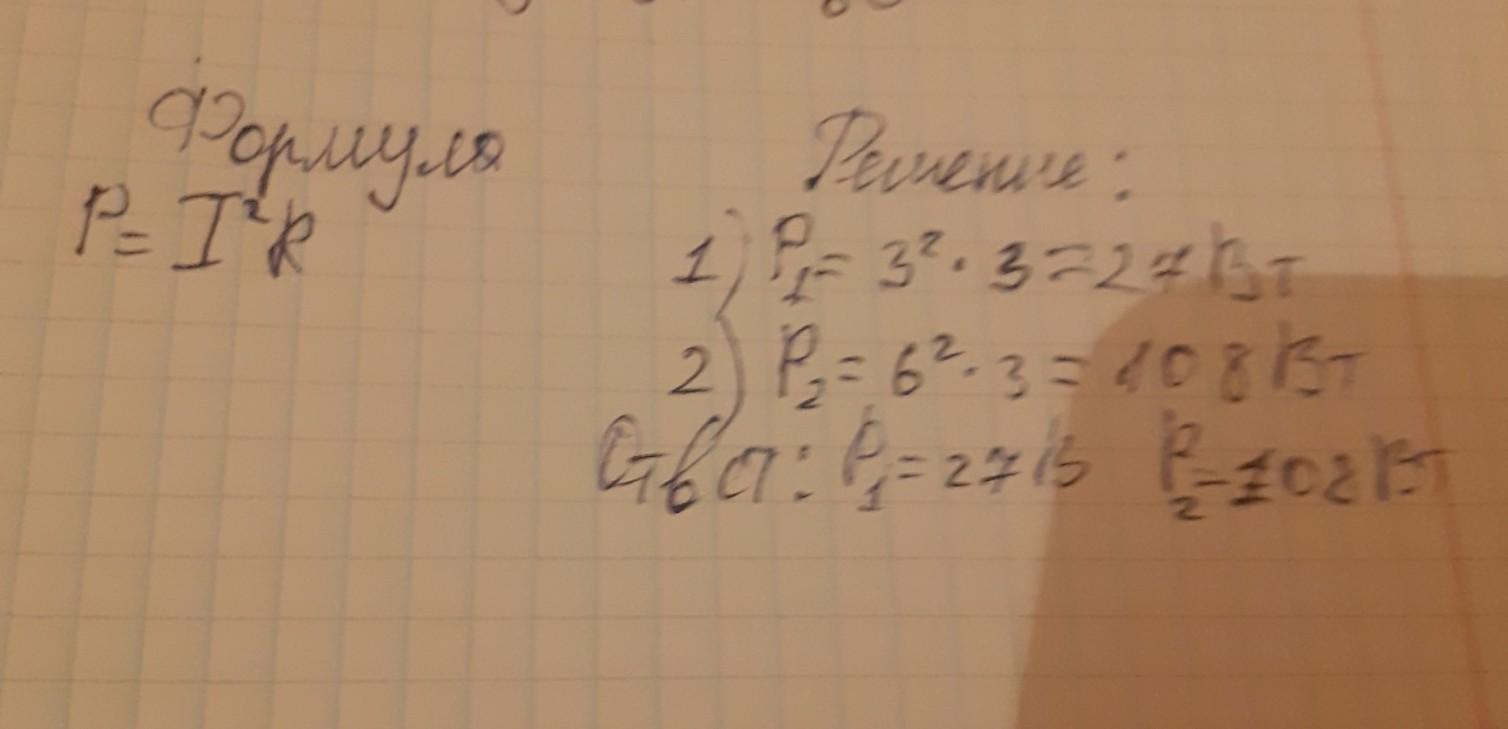 Формула
P = I²R
Решение:
1) P₁ = 3² · 3 = 27 Вт
2) P₂ = 6² · 3 = 108 Вт
Ответ: P₁ = 27 В P₂ = 108 Вт